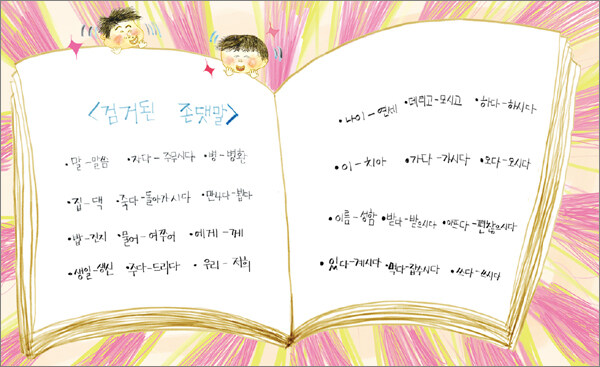 <검거된 존댓말>
•말-말씀 •자다-주무시다 •병-병환
•집-댁 •죽다-돌아가시다 •만나다-뵙다
•밥-진지 •물어-여쭈어 •에게-께
•생일-생신 •주다-드리다 •우리-저희
•나이-연세 •데리고-모시고 •하다-하시다
•이-치아 •가다-가시다 •오다-오시다
•이름-성함 •받다-받으시다 •아프다-편찮으시다
•있다-계시다 •먹다-잡수시다 •쓰다-쓰시다